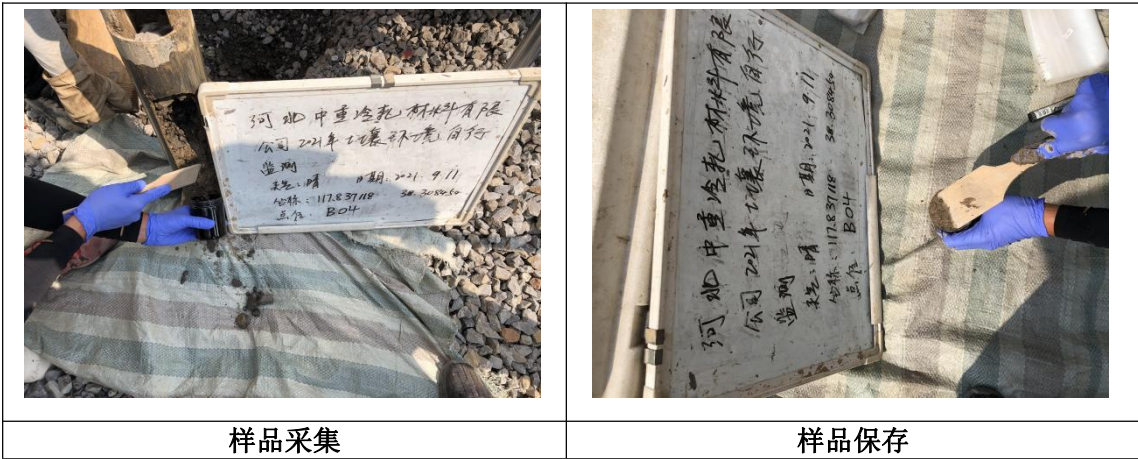 河北中重冷轧材料有限
公司2021年土壤环境自行
监测
天气：晴 日期：2021.9.11
坐标：117.837118 38.308454
点位：B04
河北中重冷轧材料有限
公司2021年土壤环境自行
监测
天气：晴 日期：2021.9.11
坐标：117.837118 38.308454
点位：B04
样品采集
样品保存